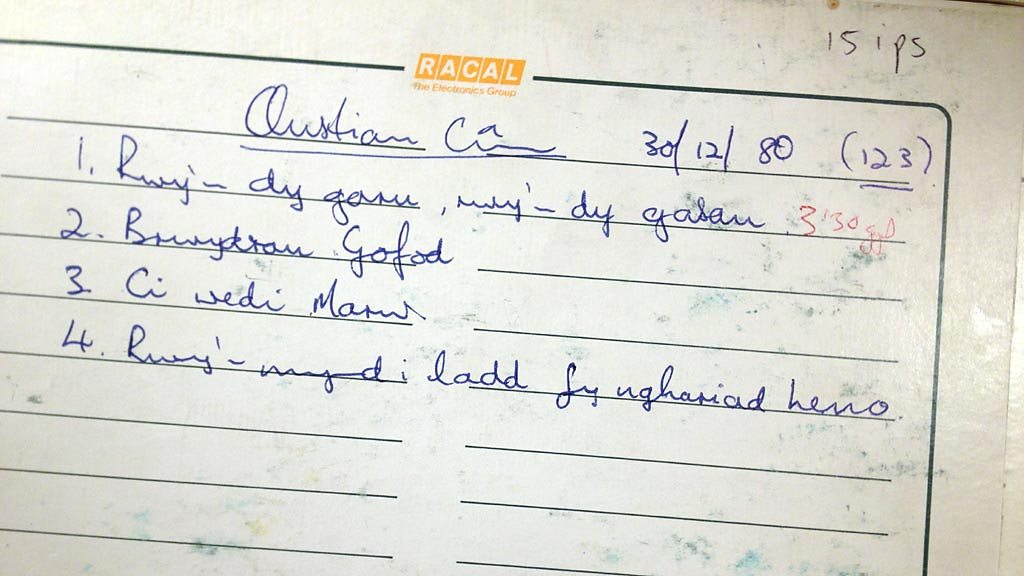 15 ips
RACAL
The Electronics Group
Oustian Can 30/12/80 (123)
1. Rwy'n dy garu, rwy'n dy gasau. 3'30
2. Brwydrau Gofod
3 Ci wedi Marw
4. Rwy'n mynd i ladd fy nghariad heno.